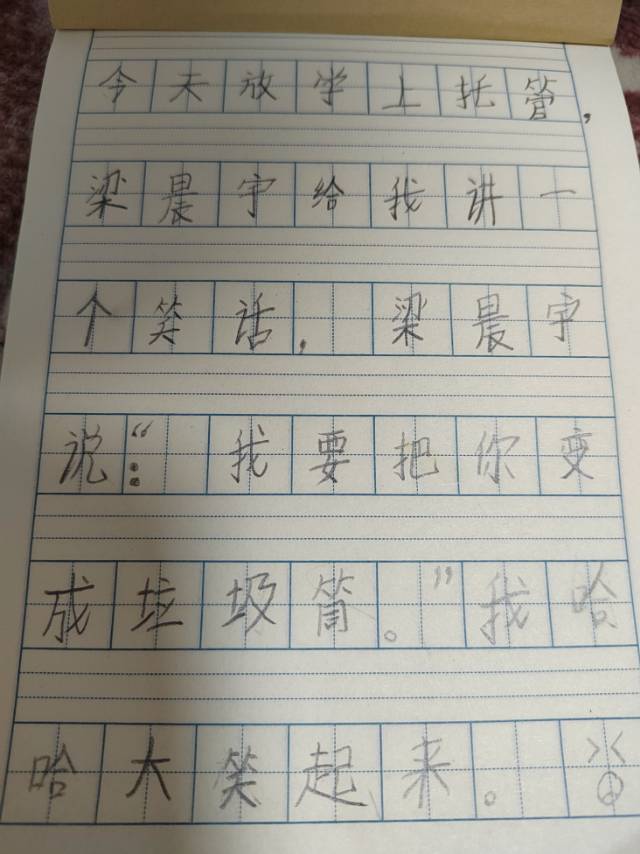 今天放学上托管，
梁晨宇给我讲一
个笑话，梁晨宇
说：“我要把你变
成垃圾筒。”我哈
哈大笑起来。